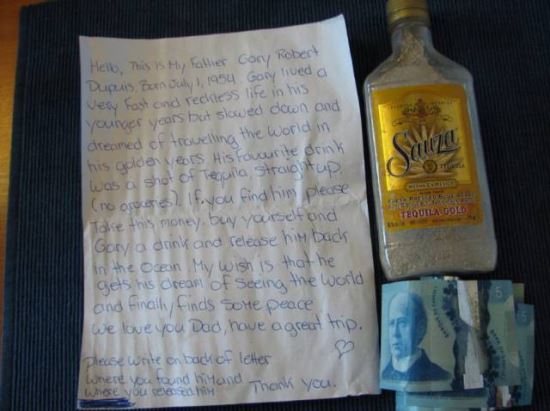 Hello, This is My Father Gary Robert
Dupuis, Born July 1, 1954. Gary lived a
very fast and reckless life in his
younger years but slowed down and
dreamed of travelling the world in
his golden years. His favourite drink
was a shot of Tequila, straight up
(no groceries). If you find him please
take this money, buy yourself and
Gary a drink and release him back
in the ocean. My wish is that he
gets his dream of seeing the world
and finally finds some peace
We love you Dad, have a great trip.
please write on back of letter
where you found him and
where you released him
Thank you.
Sauza
TEQUILA
TEQUILA GOLD
5
5